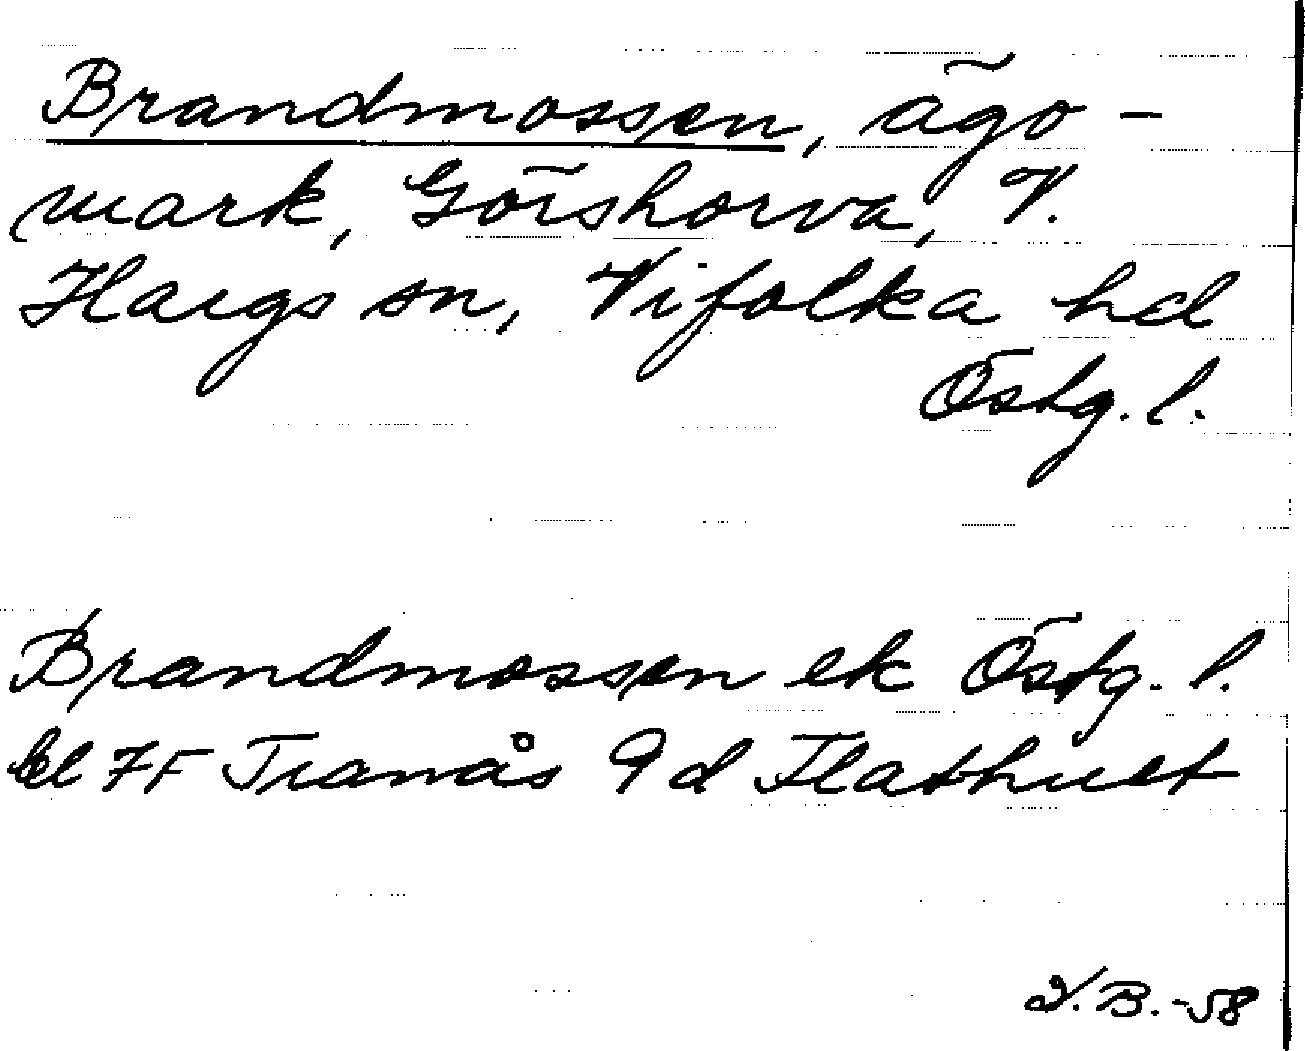 Brandmossen, ägo-
mark, Görshorva, V.
Hargs sn, Vifolka hd
Östg. l.
Brandmossen ek Östg. l.
bl 7F Tranås 9d Flathult
V.B.-58